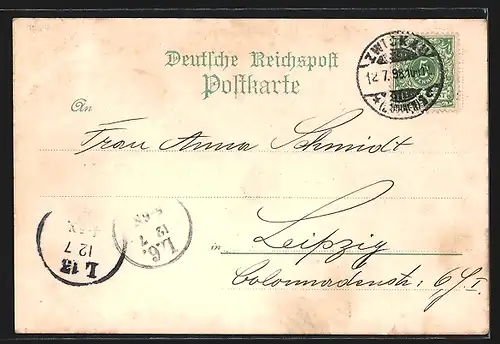 Deutsche Reichspost
Postkarte
An
Frau Anna Schmidt
in Leipzig
Colonnadenstr: 6/I.
ZWICKAU
12 7. 98
5
L 13
12 7
L.6.
12 7